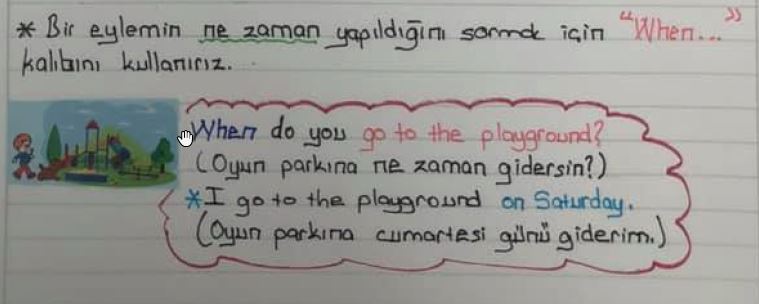 * Bir eylemin ne zaman yapıldığını sormak için "When..."
kalıbını kullanırız.
When do you go to the playground?
(Oyun parkına ne zaman gidersin?)
*I go to the playground on Saturday.
(Oyun parkına cumartesi günü giderim.)